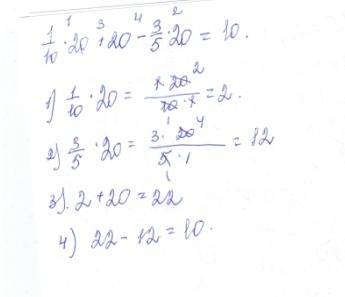 1/10 ·¹ 20 +³ 20 −⁴ 3/5 ·² 20 = 10.
1) 1/10 · 20 = (1 · 20 ²)/(10 · 1) = 2.
1
2) 3/5 · 20 = (3 · 20 ⁴)/(5 · 1) = 12
1
3). 2 + 20 = 22
4) 22 − 12 = 10.